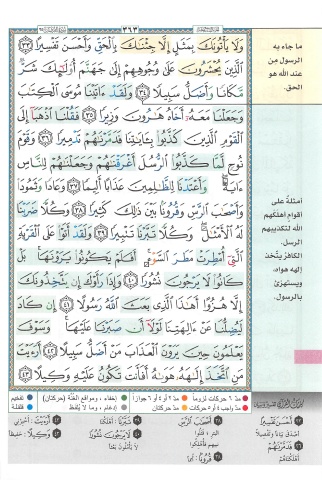 ٣٦٣
وَلَا يَأْتُونَكَ بِمَثَلٍ إِلَّا جِئْنَٰكَ بِٱلْحَقِّ وَأَحْسَنَ تَفْسِيرًا ٣٣
ٱلَّذِينَ يُحْشَرُونَ عَلَىٰ وُجُوهِهِمْ إِلَىٰ جَهَنَّمَ أُو۟لَٰٓئِكَ شَرٌّ
مَّكَانًا وَأَضَلُّ سَبِيلًا ٣٤ وَلَقَدْ ءَاتَيْنَا مُوسَى ٱلْكِتَٰبَ
وَجَعَلْنَا مَعَهُۥٓ أَخَاهُ هَٰرُونَ وَزِيرًا ٣٥ فَقُلْنَا ٱذْهَبَآ إِلَى
ٱلْقَوْمِ ٱلَّذِينَ كَذَّبُوا۟ بِـَٔايَٰتِنَا فَدَمَّرْنَٰهُمْ تَدْمِيرًا ٣٦ وَقَوْمَ
نُوحٍ لَّمَّا كَذَّبُوا۟ ٱلرُّسُلَ أَغْرَقْنَٰهُمْ وَجَعَلْنَٰهُمْ لِلنَّاسِ
ءَايَةً ۖ وَأَعْتَدْنَا لِلظَّٰلِمِينَ عَذَابًا أَلِيمًا ٣٧ وَعَادًا وَثَمُودَا۟
وَأَصْحَٰبَ ٱلرَّسِّ وَقُرُونًۢا بَيْنَ ذَٰلِكَ كَثِيرًا ٣٨ وَكُلًّا ضَرَبْنَا
لَهُ ٱلْأَمْثَٰلَ ۖ وَكُلًّا تَبَّرْنَا تَتْبِيرًا ٣٩ وَلَقَدْ أَتَوْا۟ عَلَى ٱلْقَرْيَةِ
ٱلَّتِىٓ أُمْطِرَتْ مَطَرَ ٱلسَّوْءِ ۚ أَفَلَمْ يَكُونُوا۟ يَرَوْنَهَا ۚ بَلْ
كَانُوا۟ لَا يَرْجُونَ نُشُورًا ٤٠ وَإِذَا رَأَوْكَ إِن يَتَّخِذُونَكَ
إِلَّا هُزُوًا أَهَٰذَا ٱلَّذِى بَعَثَ ٱللَّهُ رَسُولًا ٤١ إِن كَادَ
لَيُضِلُّنَا عَنْ ءَالِهَتِنَا لَوْلَآ أَن صَبَرْنَا عَلَيْهَا ۚ وَسَوْفَ
يَعْلَمُونَ حِينَ يَرَوْنَ ٱلْعَذَابَ مَنْ أَضَلُّ سَبِيلًا ٤٢ أَرَءَيْتَ
مَنِ ٱتَّخَذَ إِلَٰهَهُۥ هَوَىٰهُ أَفَأَنتَ تَكُونُ عَلَيْهِ وَكِيلًا ٤٣
ما جاء به
الرسول من
عند الله هو
الحق.
أمثلة على
أقوام أهلكهم
الله لتكذيبهم
الرسل.
الكافر يتّخذ
إلهه هواه،
ويستهزئ
بالرسول.
مدّ ٦ حركات لزوماً مدّ ٢ أو ٤ أو ٦ جوازاً إخفاء، ومواقع الغنّة (حركتان) تفخيم
مدّ واجب ٤ أو ٥ حركات مدّ حركتان إدغام، وما لا يلفظ قلقلة